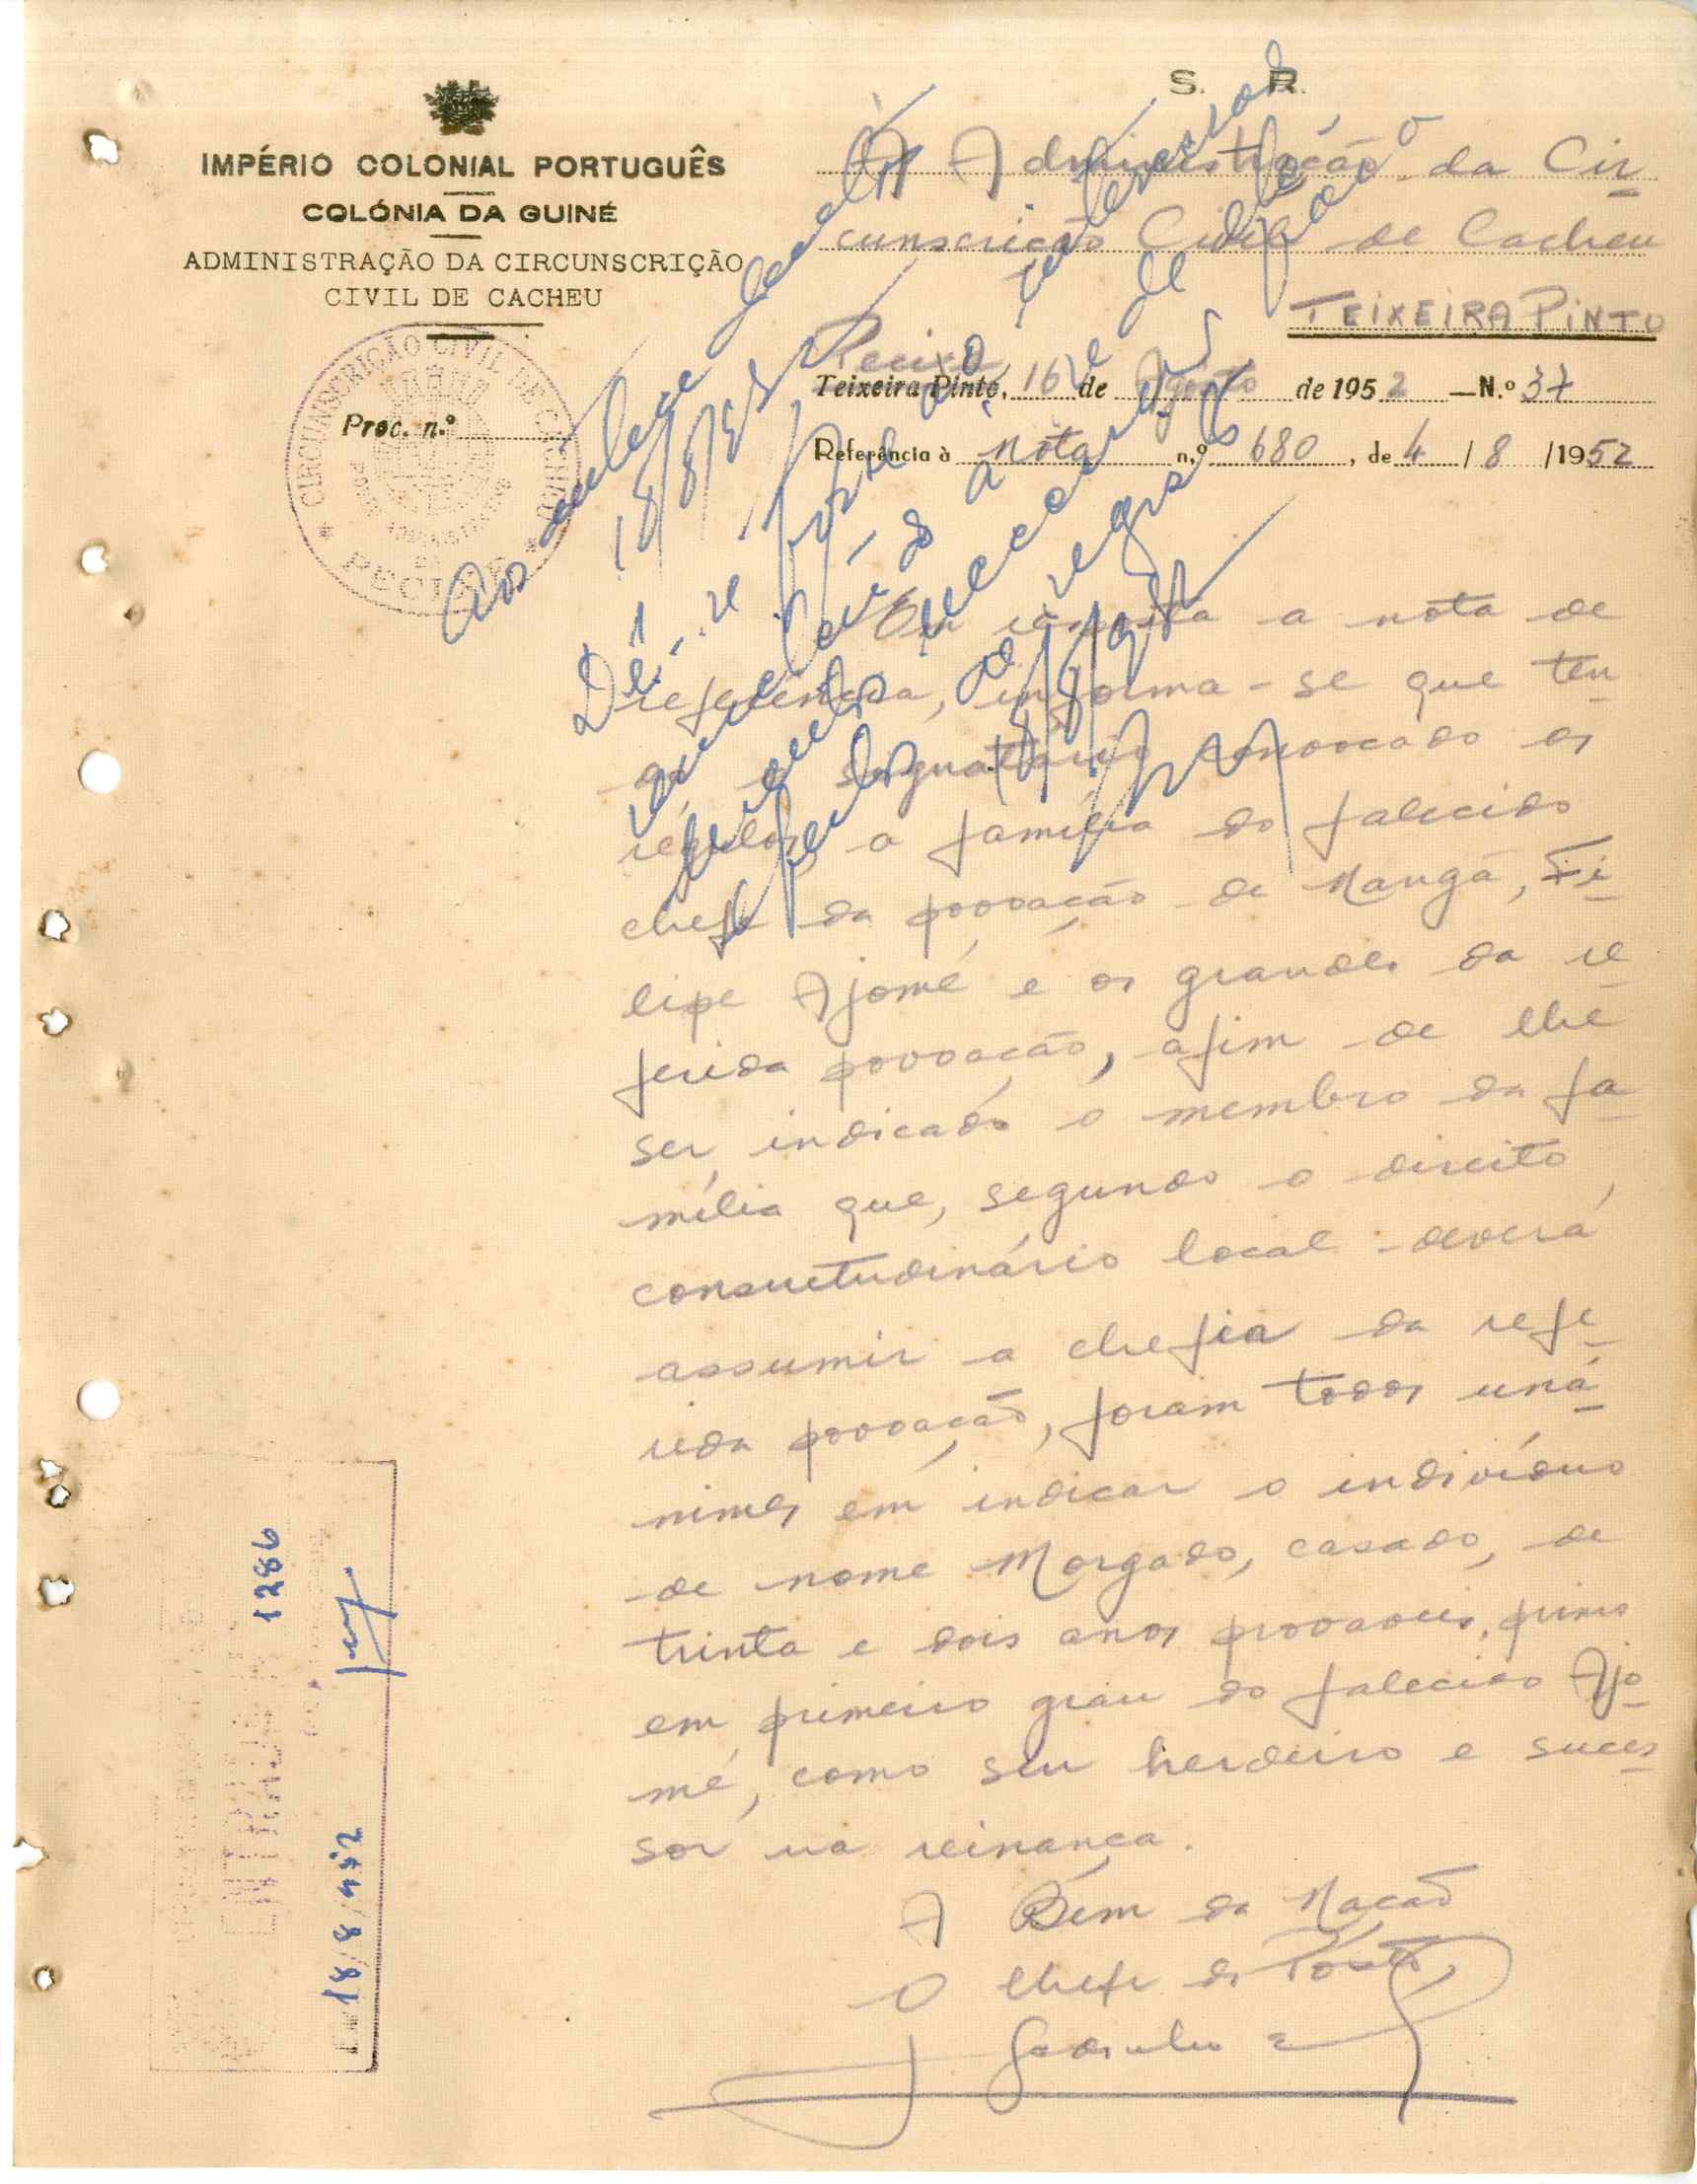 S. R.
IMPÉRIO COLONIAL PORTUGUÊS
COLÓNIA DA GUINÉ
ADMINISTRAÇÃO DA CIRCUNSCRIÇÃO
CIVIL DE CACHEU
Proc. n.º
CIRCUNSCRIÇÃO CIVIL DE CACHEU
PECIXE
À Administração da Cir
cunscrição Civil de Cacheu
TEIXEIRA PINTO
Pecixe
Teixeira Pinto, 16 de Agosto de 1952 —N.º 37
Referência à Nota n.º 680, de 4 / 8 / 1952
18/8/952
18/8/952
Em resposta a nota de
referência, informa-se que ten
do o signatário convocado os
régulos, a família do falecido
chefe da povoação de Mangá, Fi
lipe Ajomé e os grandes da re
ferida povoação, afim de lhe
ser indicado o membro da fa
mília que, segundo o direito
consuetudinário local deverá
assumir a chefia da refe
rida povoação, foram todos uná
nimes em indicar o indivíduo
de nome Morgado, casado, de
trinta e dois anos prováveis, primo
em primeiro grau do falecido Ajo
mé, como seu herdeiro e suces
sor na reinança.
A Bem da Nação
O Chefe de Posto,
ENTRADA N.º 1286
18/8/952